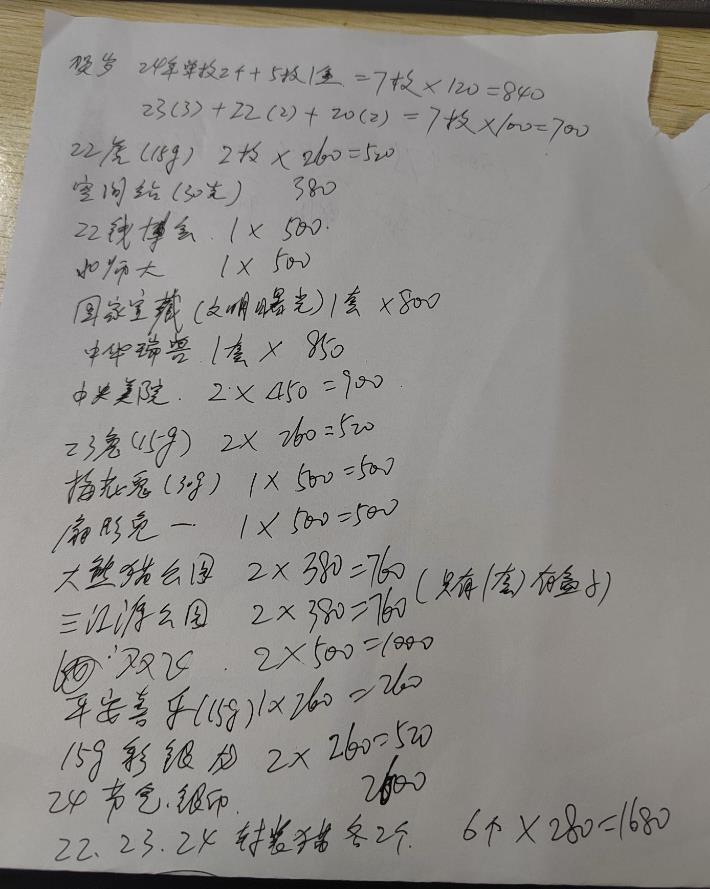 贺岁 24年单枚2个+5枚1盒=7枚×120=840
23(3)+22(2)+20(2)=7枚×100=700
22虎(15g) 2枚×260=520
空间站(30克) 380
22钱博会 1×500.
北师大 1×500
国家宝藏(文明曙光)1套×800
中华瑞兽 1套×850
中央美院. 2×450=900.
23兔(15g) 2×260=520
梅花兔(30g) 1×500=500
扇形兔一 1×500=500
大熊猫公园 2×380=760
三江源公园 2×380=760(只有1套)有盒子
双24. 2×500=1000
平安喜乐(15g)1×260=260
15g彩银龙 2×260=520
24节气.银币. 2600
22、23、24封装猫各2个. 6个×280=1680